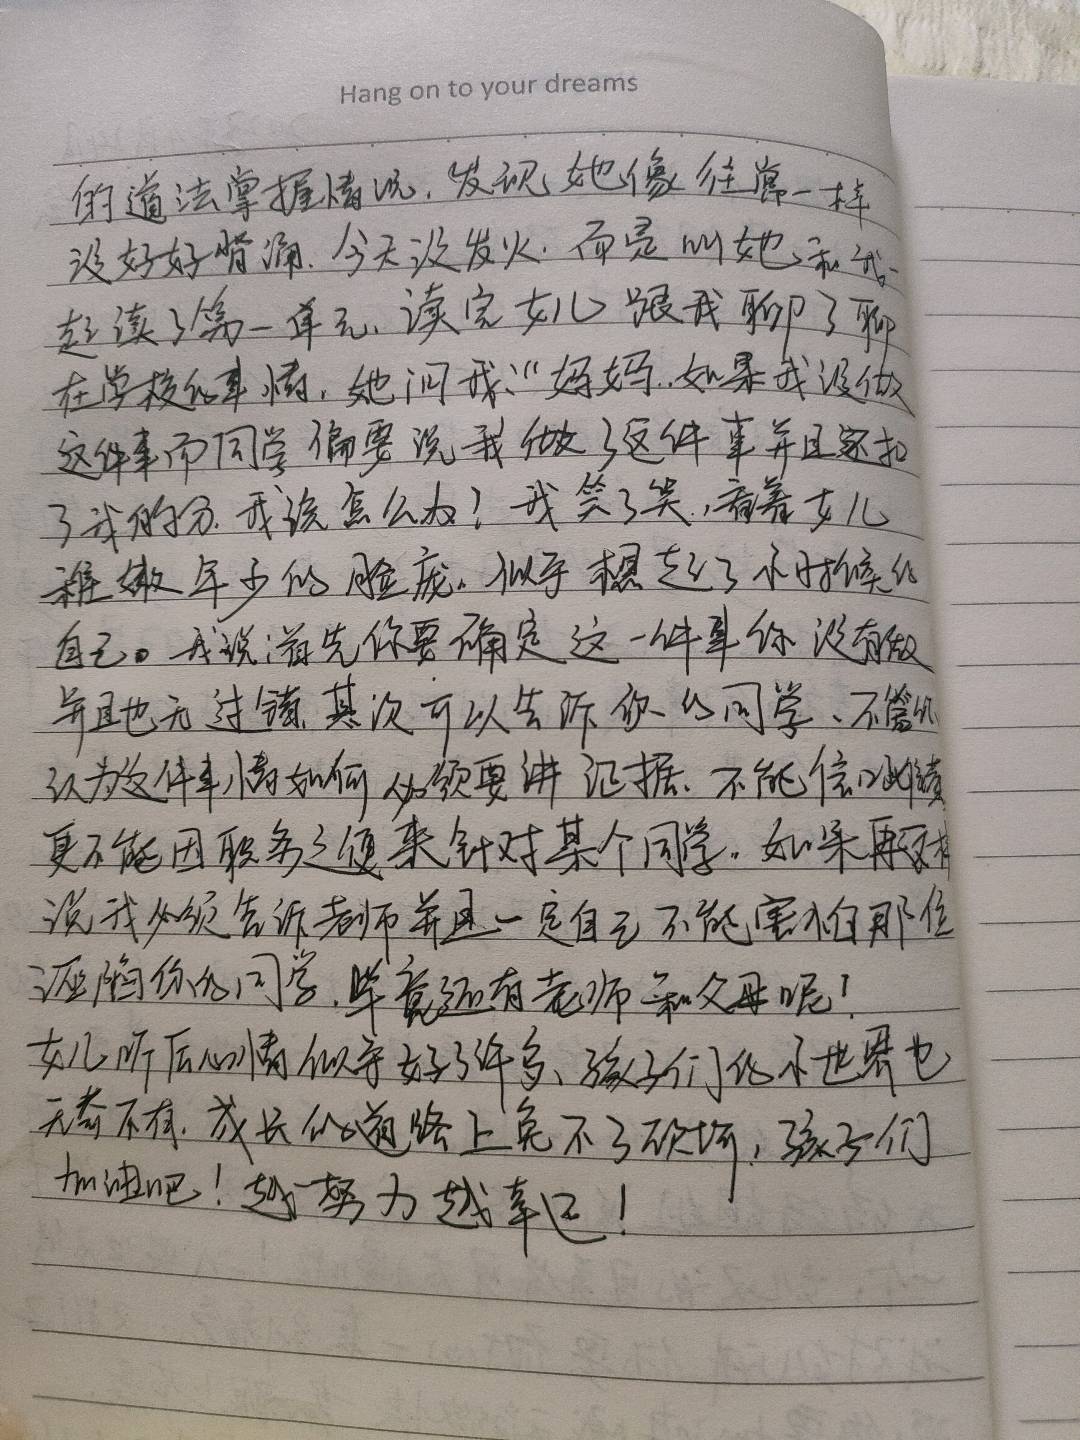 Hang on to your dreams
的道法掌握情况，发现她像往常一样
没好好背诵、今天没发火、而是叫她和我一
起读了第一单元、读完女儿跟我聊了聊
在学校的事情，她问我：“妈妈..如果我没做
这件事而同学偏要说我做了这件事并且还扣
了我的分、我该怎么办？我笑了笑，看着女儿
稚嫩年少的脸庞。似乎想起了小时候的
自己。我说：首先你要确定这一件事你没有做
并且也无过错、其次可以告诉你的同学、不管他
认为这件事情如何必须要讲证据、不能信口
更不能因职务之便来针对某个同学。如果再
说我必须告诉老师并且一定自己不能害怕那位
诬陷你的同学，毕竟还有老师和父母呢！
女儿听后心情似乎好了许多、孩子们的小世界也
无奇不有，成长的道路上免不了砍坷，孩子们
加油吧！越努力越幸运！